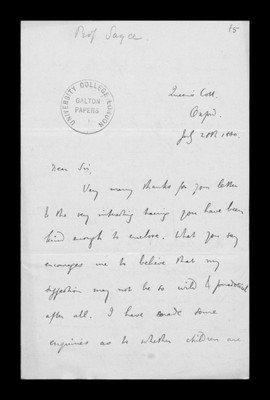 Prof Sayce.
15
UNIVERSITY COLLEGE LONDON
GALTON
PAPERS
Queen's Coll.
Oxford.
July 28th
Dear Sir,
Very many thanks for your letter
& the very interesting you have been
kind enough to enclose. What you say
encourages me to believe that my
suggestion may not be so wild & paradoxical
after all. I have made some
enquiries as to whether children are